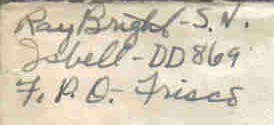 Ray Bright - S.N.
Isbell - DD869
F.P.O. - Frisco